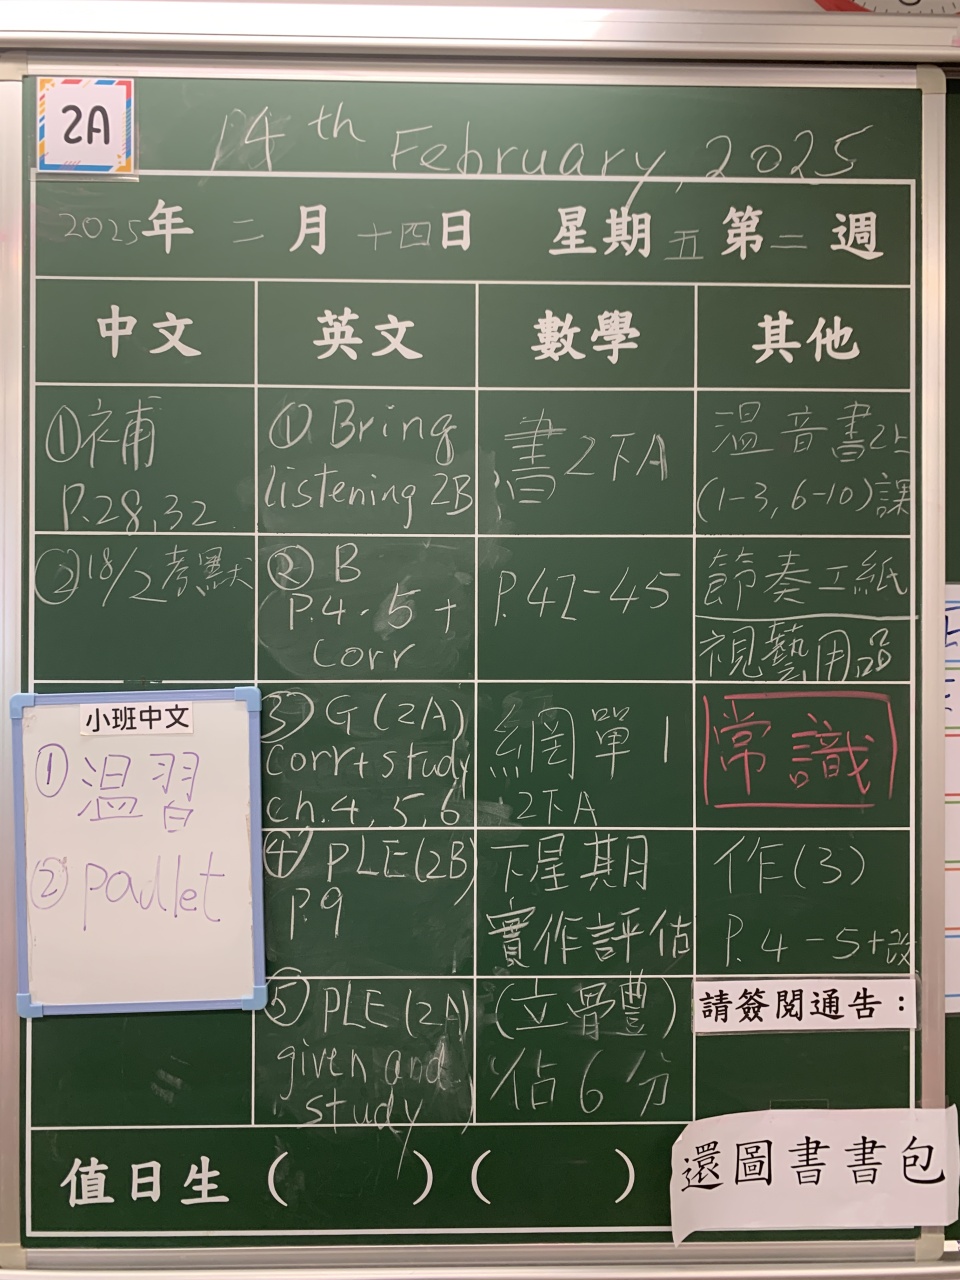 2A
14th February, 2025
2025年 二 月 十四日 星期五 第二週
中文
英文
數學
其他
①補
P.28,32
②18/2考默
小班中文
①溫習
②padlet
① Bring
listening 2B
② B
P.4-5 +
corr
③ G (2A)
corr + study
ch.4, 5, 6
④ PLE (2B)
P.9
⑤ PLE (2A)
given and
study
書2下A
P.42-45
網單1
2下A
下星期
實作評估
(立體)
佔6分
溫音書2上
(1-3, 6-10)課
節奏工紙
視藝用品
常識
作(3)
P.4-5+改
請簽閱通告：
值日生 ( ) ( )
還圖書書包